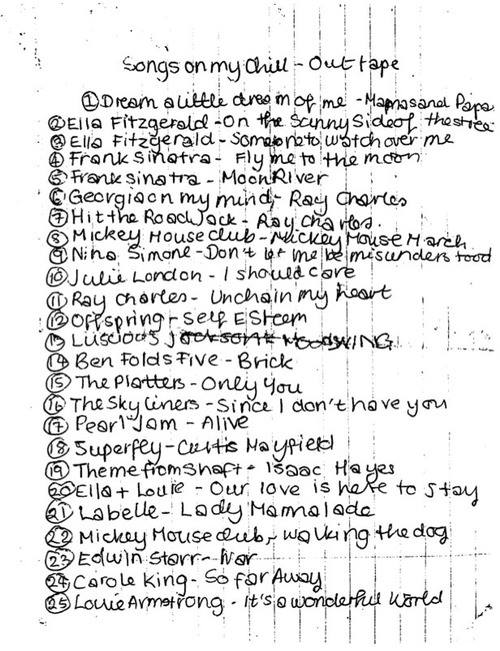 Songs on my Chill-Out tape
① Dream a little dream of me - Mamas and Papas
② Ella Fitzgerald - On the Sunny Side of the street
③ Ella Fitzgerald - Someone to watch over me
④ Frank Sinatra - Fly me to the moon
⑤ Frank Sinatra - Moon River
⑥ Georgia on my mind - Ray Charles
⑦ Hit the Road Jack - Ray Charles.
⑧ Mickey Mouse Club - Mickey Mouse March
⑨ Nina Simone - Don't let me be misunderstood
⑩ Julie London - I should care
⑪ Ray Charles - Unchain my heart
⑫ Offspring - Self Esteem
⑬ Luscious J
⑭ Ben Folds Five - Brick
⑮ The Platters - Only You
⑯ The Skyliners - Since I don't have you
⑰ Pearl Jam - Alive
⑱ Superfly - Curtis Mayfield
⑲ Theme from Shaft - Isaac Hayes
⑳ Ella + Louie - Our love is here to stay
㉑ Labelle - Lady Marmalade
㉒ Mickey Mouse club - walking the dog
㉓ Edwin Starr - War
㉔ Carole King - So far Away
㉕ Louie Armstrong - It's a wonderful World